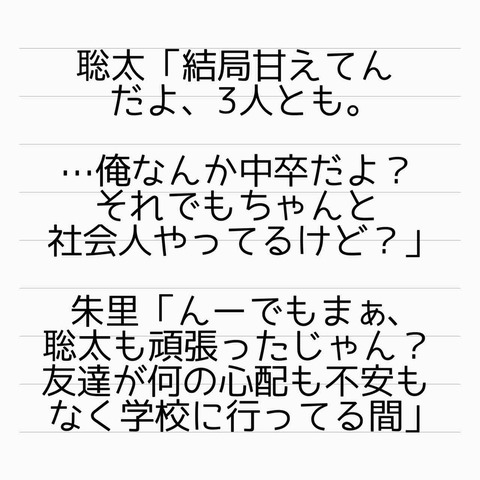 聡太「結局甘えてん
だよ、3人とも。
…俺なんか中卒だよ？
それでもちゃんと
社会人やってるけど？」
朱里「んーでもまぁ、
聡太も頑張ったじゃん？
友達が何の心配も不安も
なく学校に行ってる間」